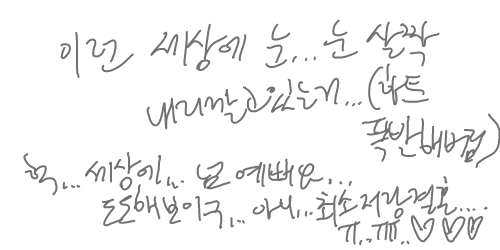 이런 세상에 눈... 눈 살짝
내리깔고있는거...(하트
폭발해버림)
헉... 세상에... 넘 예뻐요...
도도해보이구... 아니... 최소저랑결혼....
ㄲ..ㄲㅑ..♡♡♡